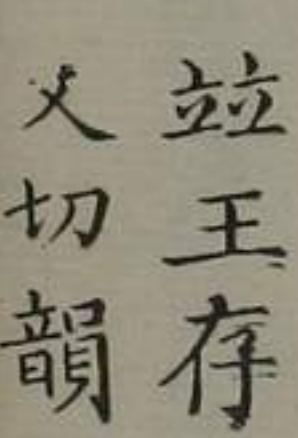 竝王存
乂切韻